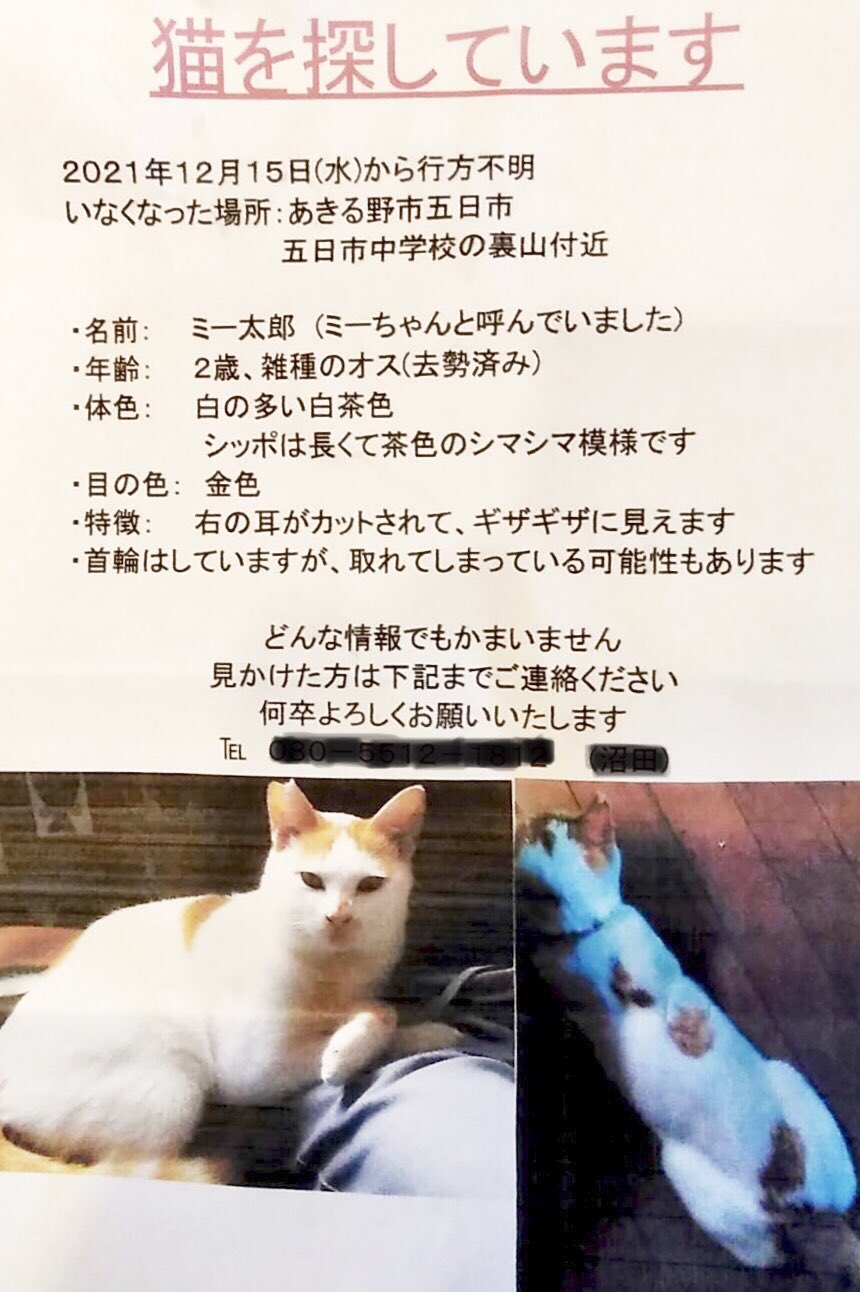 猫を探しています
2021年12月15日(水)から行方不明
いなくなった場所:あきる野市五日市
五日市中学校の裏山付近
・名前: ミー太郎 (ミーちゃんと呼んでいました)
・年齢: 2歳、雑種のオス(去勢済み)
・体色: 白の多い白茶色
シッポは長くて茶色のシマシマ模様です
・目の色: 金色
・特徴: 右の耳がカットされて、ギザギザに見えます
・首輪はしていますが、取れてしまっている可能性もあります
どんな情報でもかまいません
見かけた方は下記までご連絡ください
何卒よろしくお願いいたします
TEL